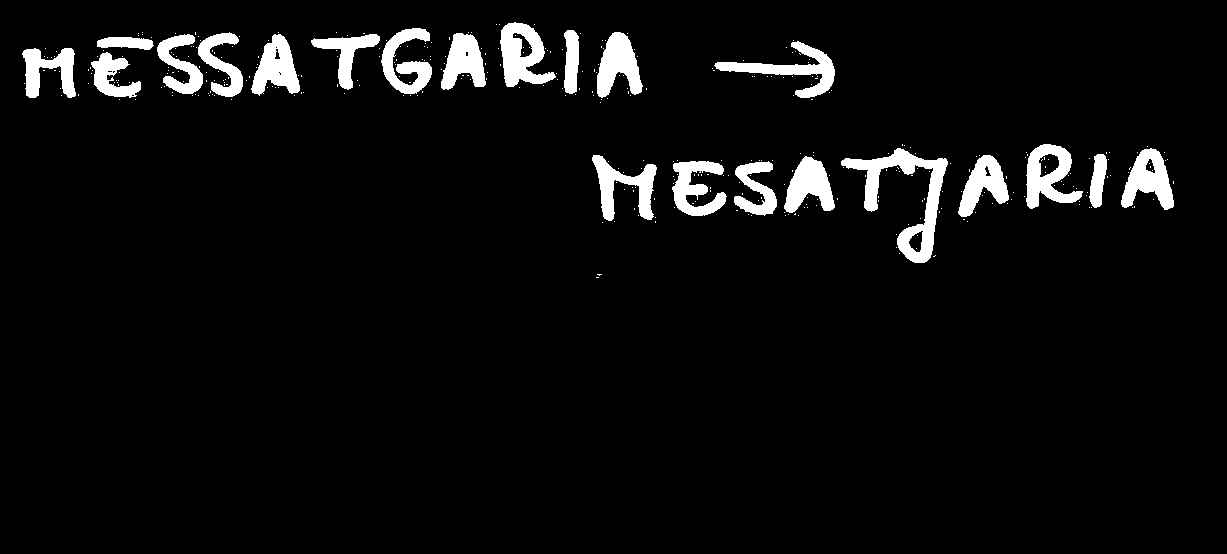 MESSATGARIA →
MESATJARIA